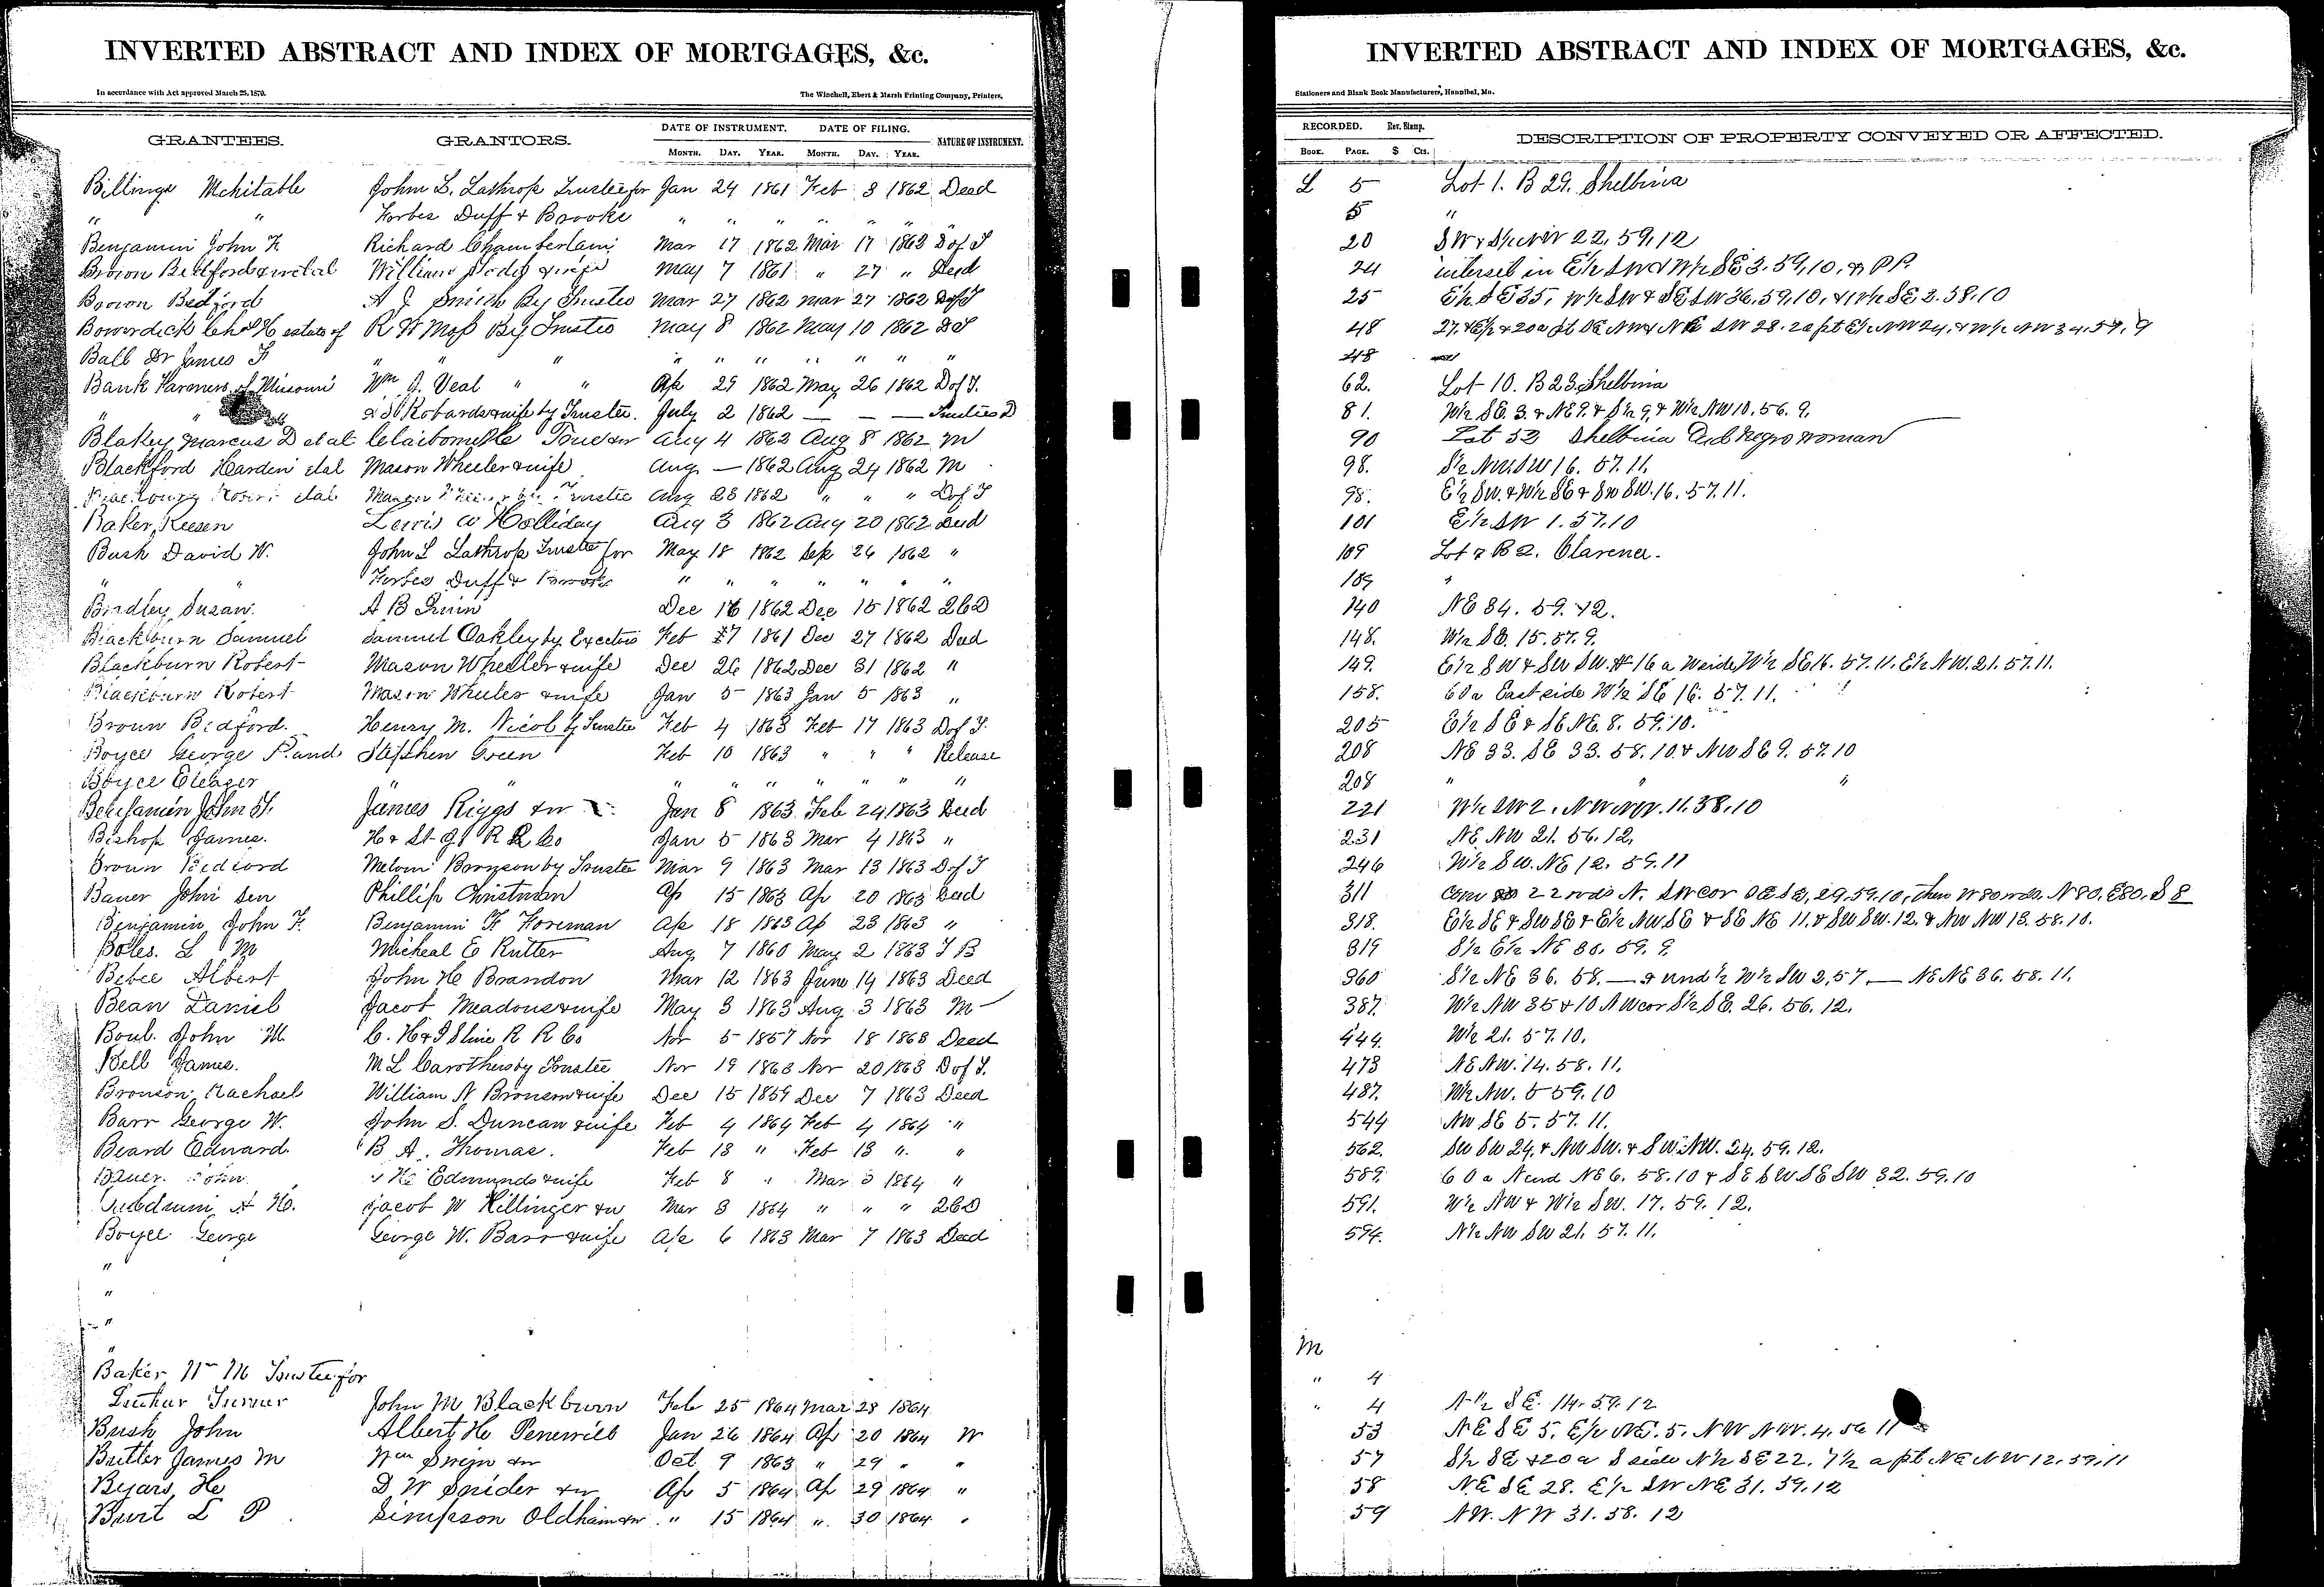 INVERTED ABSTRACT AND INDEX OF MORTGAGES, &c.
In accordance with Act approved March 25, 1870.
The Winchell, Ebert & Marsh Printing Company, Printers,
GRANTEES. GRANTORS. DATE OF INSTRUMENT. DATE OF FILING. NATURE OF INSTRUMENT.
MONTH. DAY. YEAR. MONTH. DAY. YEAR.
Billings Mehitable John L. Lathrop Trustee for Jan 24 1861 Feb 3 1862 Deed
" " Forbes Duff & Brooke " " " " " "
Benjamin John F. Richard Chamberlain Mar 17 1862 Mar 17 1862 D of T
Brown Bedford & William & wife May 7 1861 " 27 " Deed
Brown Bedford A J Smith By Trustee Mar 27 1862 Mar 27 1862 D of T
Chas H estate of R W Moss By Trustee May 8 1862 May 10 1862 D T
Ball Dr James F " " " " " " " " " "
Bank Farmers of Missouri Wm J. Veal " " Ap 29 1862 May 26 1862 D of T.
" " Robards & wife by Trustee. July 2 1862 — — — Trustees D
Blakey Marcus D et al Claiborne Aug 4 1862 Aug 8 1862 M
Blackford Hardin et al Mason Wheeler & wife Aug — 1862 Aug 24 1862 M
et al Mason by Trustee Aug 23 1862 " " " D of T
Baker, Reesen Lewis W Holliday Aug 3 1862 Aug 20 1862 Deed
Bush David W. John L Lathrop Trustee for May 18 1862 Sep 24 1862 "
" " Forbes Duff & Brooke " " " " " " "
Bradley, Susan. A B Dec 16 1862 Dec 15 1862
Blackburn Samuel Samuel Oakley by Feb 27 1861 Dec 27 1862 Deed
Blackburn Robert Mason Wheeler & wife Dec 26 1862 Dec 31 1862 "
Blackburn Robert Mason Wheeler & wife Jan 5 1863 Jan 5 1863 "
Brown Bedford. Henry M. Nicol by Trustee Feb 4 1863 Feb 17 1863 D of T.
Boyce George P. and Stephen Green Feb 10 1863 " " " Release
Boyce Eleager " " " " " " " " "
Benjamin John F. James Riggs & w Jan 8 1863 Feb 24 1863 Deed
Bishop James. H & St J R R Co Jan 5 1863 Mar 4 1863 "
Brown Bedford by Trustee Mar 9 1863 Mar 13 1863 D of T
Bauer John Sen Phillip Christman Ap 15 1863 Ap 20 1863 Deed
Benjamin, John F. Benjamin F Foreman Ap 18 1863 Ap 23 1863 "
Boles. L M Micheal E Rutter Aug 7 1860 May 2 1863 T B
Bebee Albert John H Brandon Mar 12 1863 June 19 1863 Deed
Bean Daniel Jacob Meadows & wife May 3 1863 Aug 3 1863 M
John M. R R Co Nov 5 1857 Nov 18 1863 Deed
Bell James. M L Carothers by Trustee Nov 19 1863 Nov 20 1863 D of T.
Bronson, Rachael William N Bronson & wife Dec 15 1859 Dec 7 1863 Deed
Barr George W. John S. Duncan & wife Feb 4 1864 Feb 4 1864 "
Beard Edward. B A. Thomas. Feb 13 " Feb 13 " "
Bauer. John Edmunds & wife Feb 8 " Mar 3 1864 "
Jacob W Killinger & w Mar 3 1864 " " "
Boyce George George W. Barr & wife Ap 6 1863 Mar 7 1863 Deed
"
"
"
"
Baker Wm M Trustee for
Luther Turner John M Blackburn Feb 25 1864 Mar 28 1864
Bush John Albert H Penewill Jan 26 1864 Ap 20 1864 W
Butler James M Wm & w Oct 9 1863 " 29 " "
Byars, H D W Snider & w Ap 5 1864 Ap 29 1864 "
L P Simpson Oldham & w " 15 1864 " 30 1864 "
INVERTED ABSTRACT AND INDEX OF MORTGAGES, &c.
Stationers and Blank Book Manufacturers, Hannibal, Mo.
RECORDED. Rev. Stamp. DESCRIPTION OF PROPERTY CONVEYED OR AFFECTED.
BOOK. PAGE. $ Cts.
L 5 Lot 1. B 29. Shelbina
5 "
20 22, 59, 12
24 interest in E½ SW & W½ SE 3. 59, 10,
25 E½ SE 35, W½ SW & SE SW 36. 59, 10, 3. 58. 10
48
48
62. Lot 10. B 23 Shelbina
81. W½ SE. 3. & NE 9. & S½ 9, & W½ NW 10. 56. 9.
90 Lot 53 Shelbina And negro woman
98. 16. 57. 11.
98. E½ SW. & W½ SE & SW SW. 16. 57. 11.
101 E½ SW 1. 57. 10
109 Lot 7 B 2. Clarence.
109 "
140 NE 34. 59. 12.
148. W½ SE. 15. 57. 9.
149. E½ SW & SW SW. & 16 a W side W½ SE 16. 57. 11. E½ NW. 21. 57. 11.
158. 60 a East side W½ SE 16. 57. 11.
205 E½ SE & SE NE. 8. 59. 10.
208 NE 33. SE 33. 58. 10. & NW SE 9. 57. 10
208 " " "
221 W½ SW 2. NW NW. 11. 38. 10
231 NE NW 21. 56. 12.
246 W½ SW. NE 12. 59. 11
311 Com 22 rods N. SW cor 29, 59, 10, then W 80 rods. N 80, E 80, S 8
318. E½ SE & SW SE & E½ NW SE & SE NE 11, & SW SW. 12. & NW NW 13. 58. 10.
319 S½ E½ NE 30. 59. 9.
360 S½ NE 36. 58. — & und ½ W½ SW 2, 57, — NE NE 36. 58. 11.
387. W½ NW 35 & 10 A NW cor S½ SE. 26. 56. 12.
444. W½ 21. 57. 10.
473 NE NW. 14. 58. 11.
487. W½ NW. 5 59. 10
544 NW SE 5. 57. 11.
562. SW SW 24, & NW SW. & SW NW. 24. 59. 12.
589. 60 a N end NE 6. 58. 10 & SE SW SE SW 32. 59. 10
591. W½ NW & W½ SW. 17. 59. 12.
594. N½ NW SW 21. 57. 11.
M
" 4
" 4 N½ SE. 14. 59. 12
53 NE SE 5. E½ NE. 5. NW NW. 4. 56 11
57 S½ SE & 20 a S side N½ SE 22. 7½ a pt NE NW 12. 59, 11
58 NE SE 28. E½ SW NE 31. 59. 12
59 NW. NW 31. 58. 12